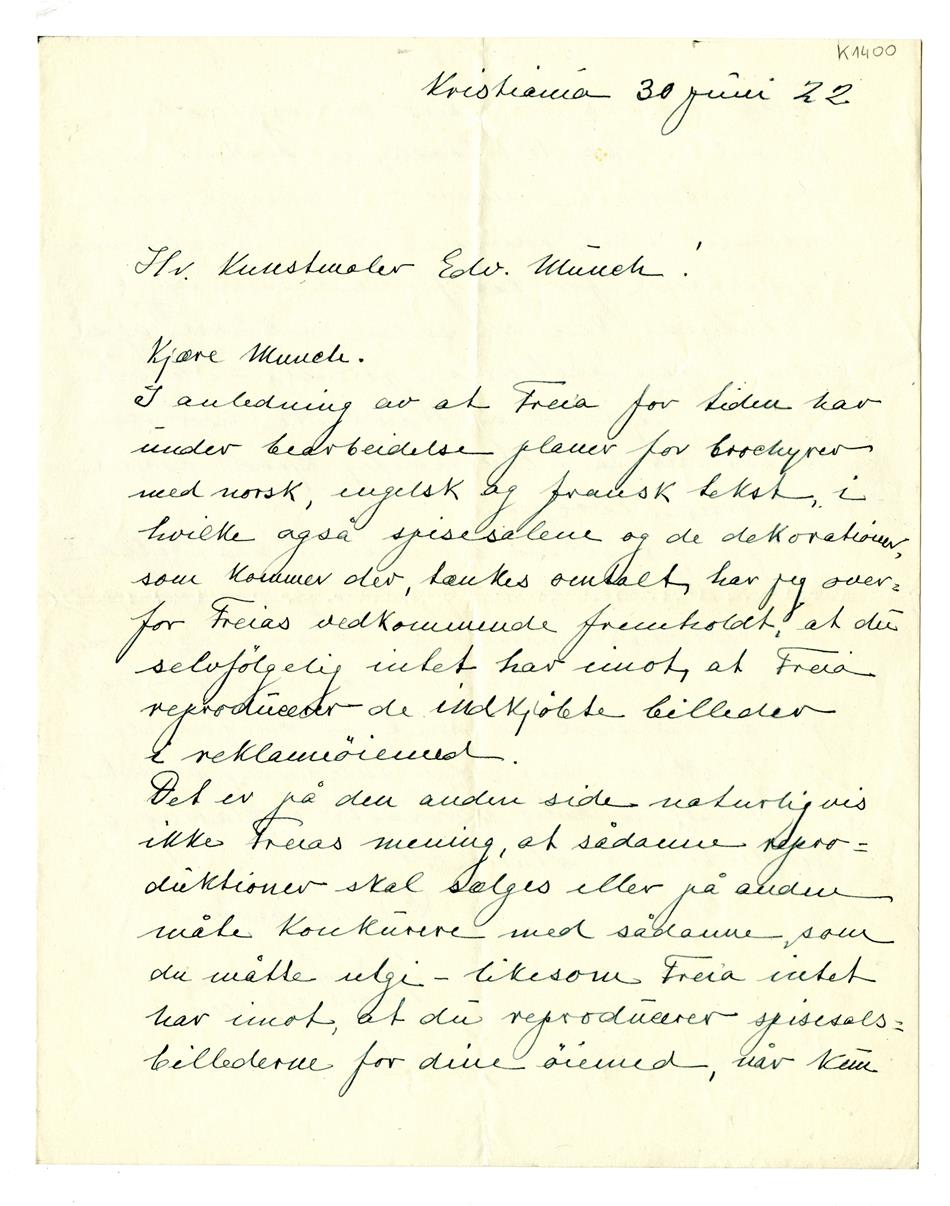 K1400
Kristiania 30 juni 22
Hr. Kunstmaler Edv. Munch!
Kjære Munch.
I anledning av at Freia for tiden har
under bearbeidelse planer for brochyrer
med norsk, engelsk og fransk tekst, i
hvilke også spisesalene og de dekorationer,
som kommer der, tænkes omtalt, har jeg over=
for Freias vedkommende fremholdt, at du
selvfölgelig intet har imot, at Freia
reproducerer de indkjöbte billeder
i reklameöiemed.
Det er på den anden side naturligvis
ikke Freias mening, at sådanne repro=
duktioner skal sælges eller på anden
måte konkurere med sådanne, som
du måtte utgi – likesom Freia intet
har imot, at du reproducerer spisesals=
billederne for dine öiemed, når kun